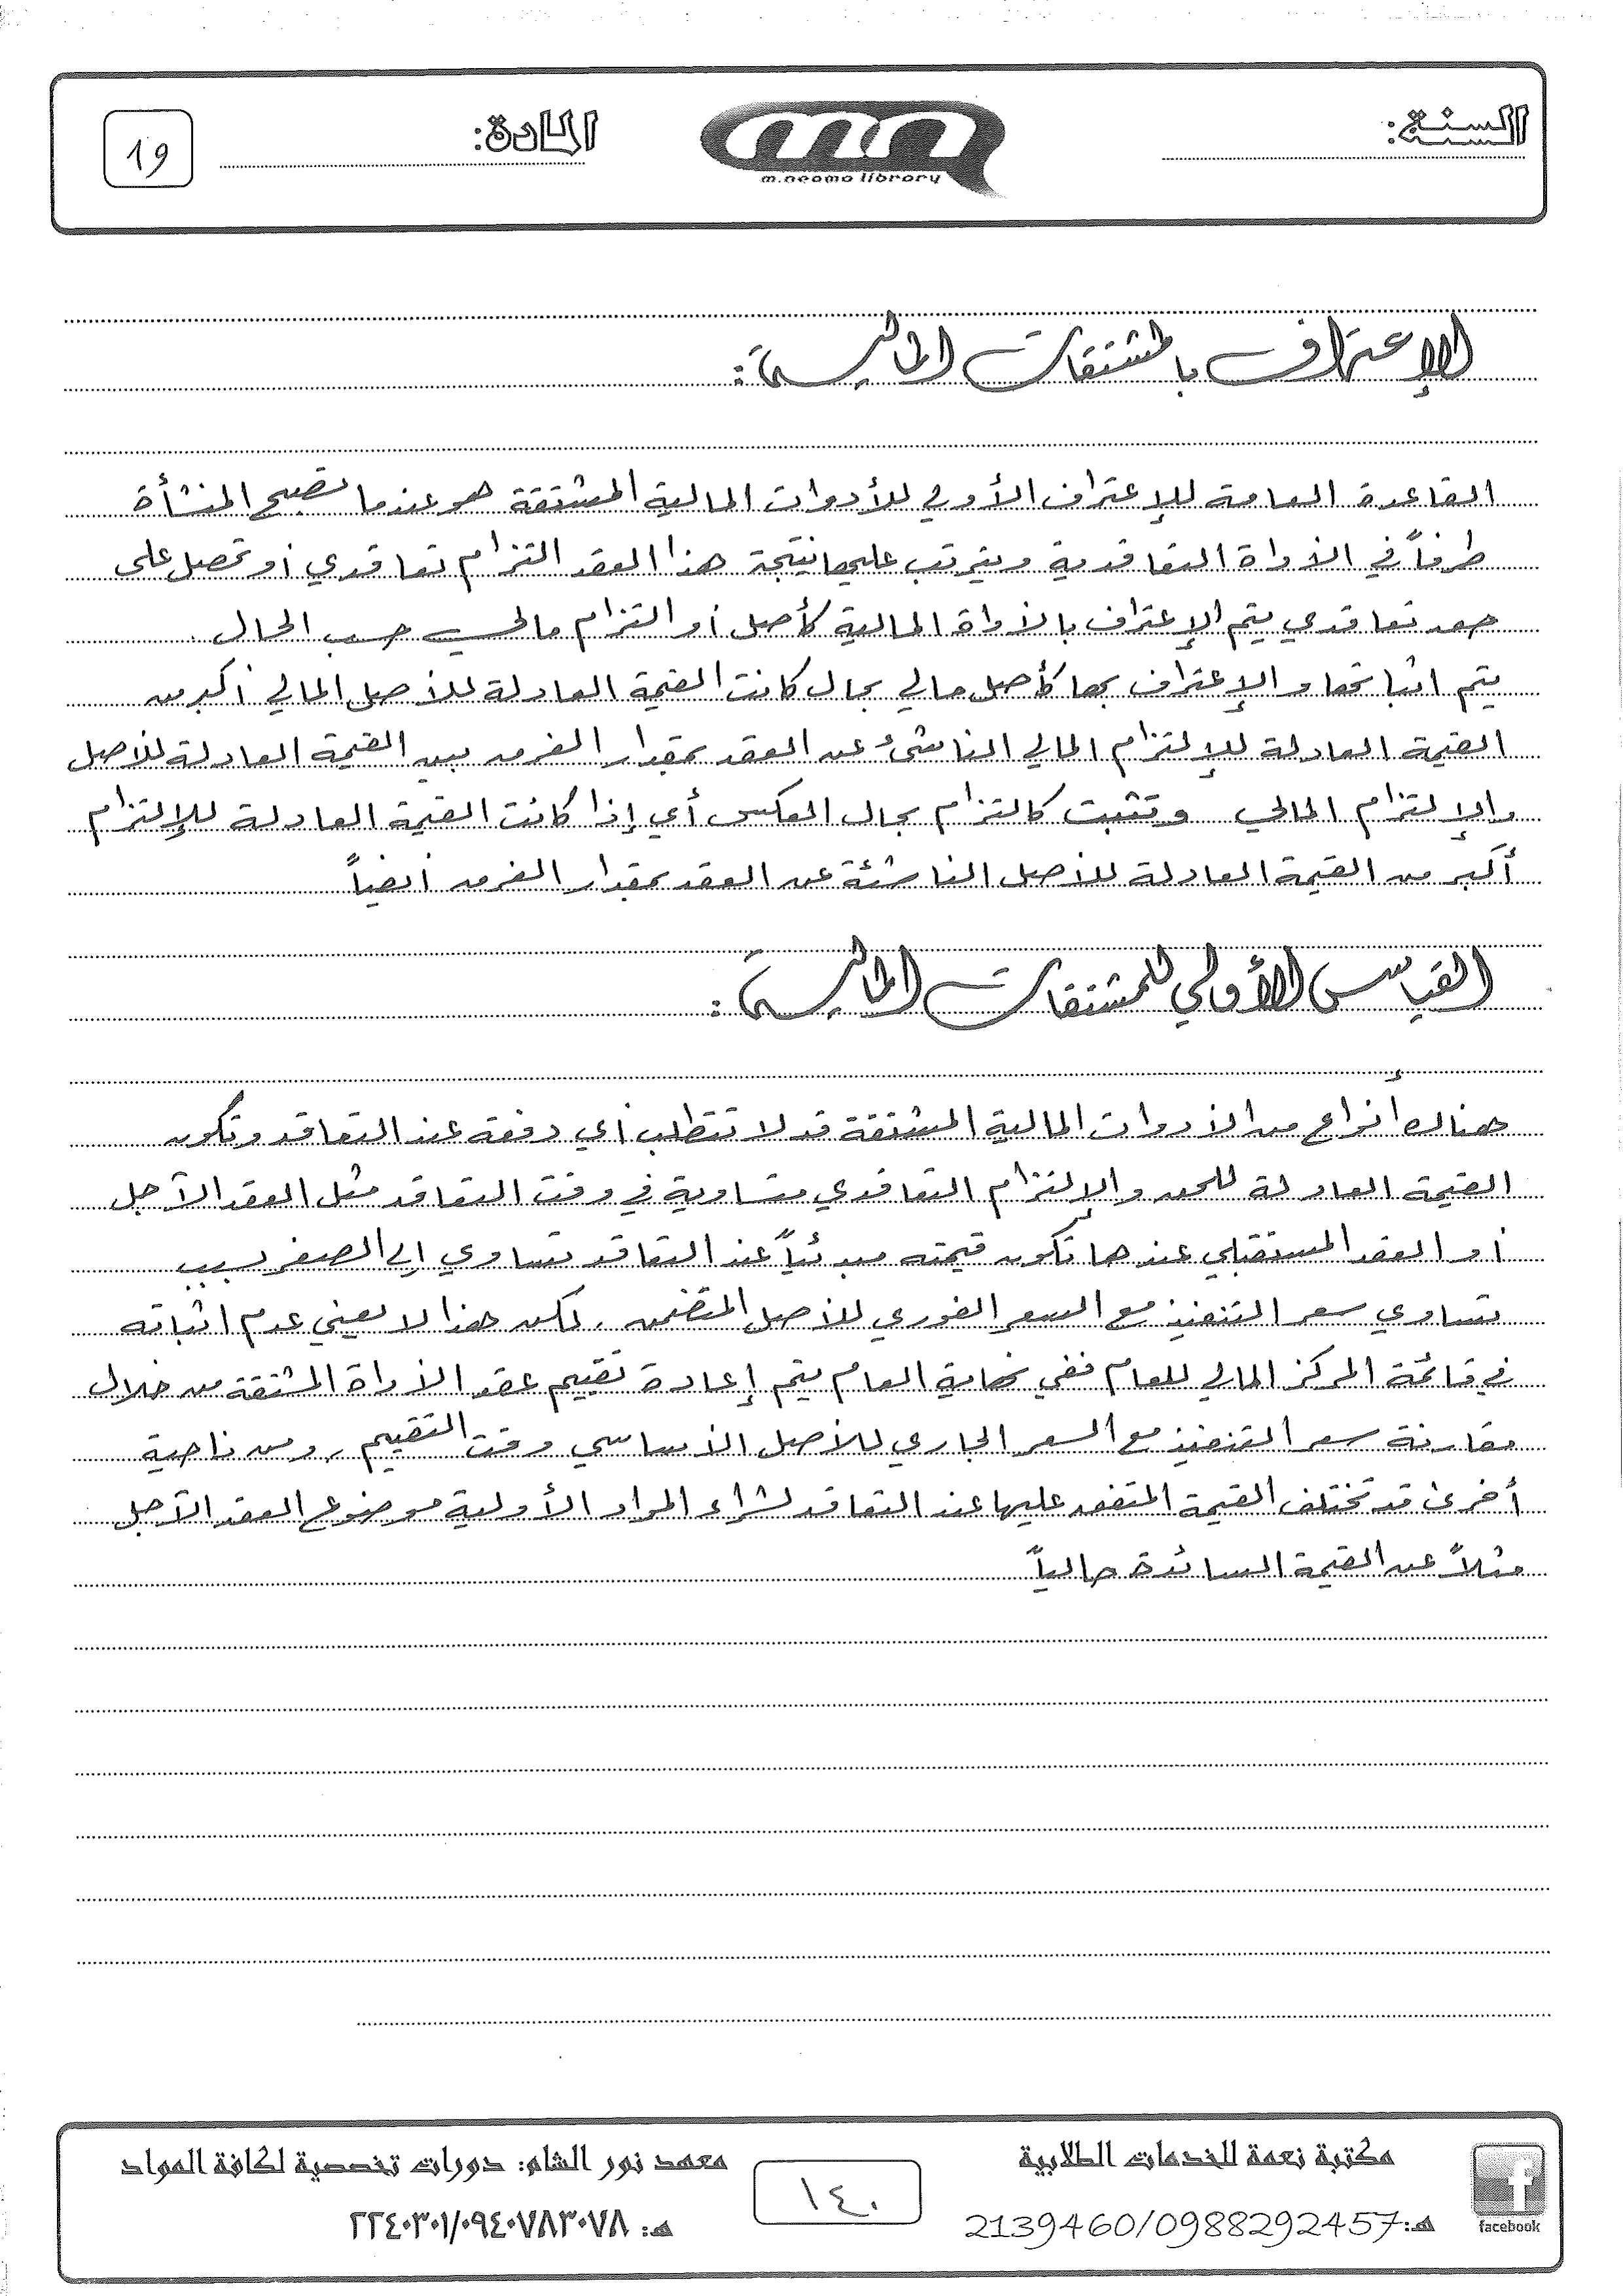 السنة:
m.neama library
المادة:
19
الإعتراف بالمشتقات المالية:
القاعدة العامة للإعتراف الأولي للأدوات المالية المشتقة هو عندما تصبح المنشأة
طرفاً في الأداة التعاقدية ويترتب عليها نتيجة هذا العقد التزام تعاقدي أو تحصل على
حق تعاقدي يتم الإعتراف بالأداة المالية كأصل أو التزام مالي حسب الحال.
يتم اثباتها والإعتراف بها كأصل مالي بحال كانت القيمة العادلة للأصل المالي أكبر من
القيمة العادلة للإلتزام المالي الناشئ عن العقد بمقدار الفرق بين القيمة العادلة للأصل
والإلتزام المالي وتثبت كالتزام بحال العكس أي إذا كانت القيمة العادلة للإلتزام
أكبر من القيمة العادلة للأصل الناشئة عن العقد بمقدار الفرق أيضاً
القياس الأولي للمشتقات المالية:
هناك أنواع من الأدوات المالية المشتقة قد لا تتطلب أي دفعة عند التعاقد وتكون
القيمة العادلة للحق والإلتزام التعاقدي متساوية في وقت التعاقد مثل العقد الآجل
أو العقد المستقبلي عندها تكون قيمته مبدئياً عند التعاقد تساوي إلى الصفر بسبب
تساوي سعر التنفيذ مع السعر الفوري للأصل المتضمن، لكن هذا لا يعني عدم اثباته
في قائمة المركز المالي للعام ففي نهاية العام يتم إعادة تقييم عقد الأداة المشتقة من خلال
مقارنة سعر التنفيذ مع السعر الجاري للأصل الأساسي وقت التقييم، ومن ناحية
أخرى قد تختلف القيمة المتفق عليها عند التعاقد لشراء المواد الأولية موضوع العقد الآجل
مثلاً عن القيمة السائدة حالياً
مكتبة نعمة للخدمات الطلابية
هـ: 2139460/0988292457
facebook
١٤٠
معهد نور الشام: دورات تخصصية لكافة المواد
هـ: ٢٢٤٠٣٠١/٠٩٤٠٧٨٣٠٧٨